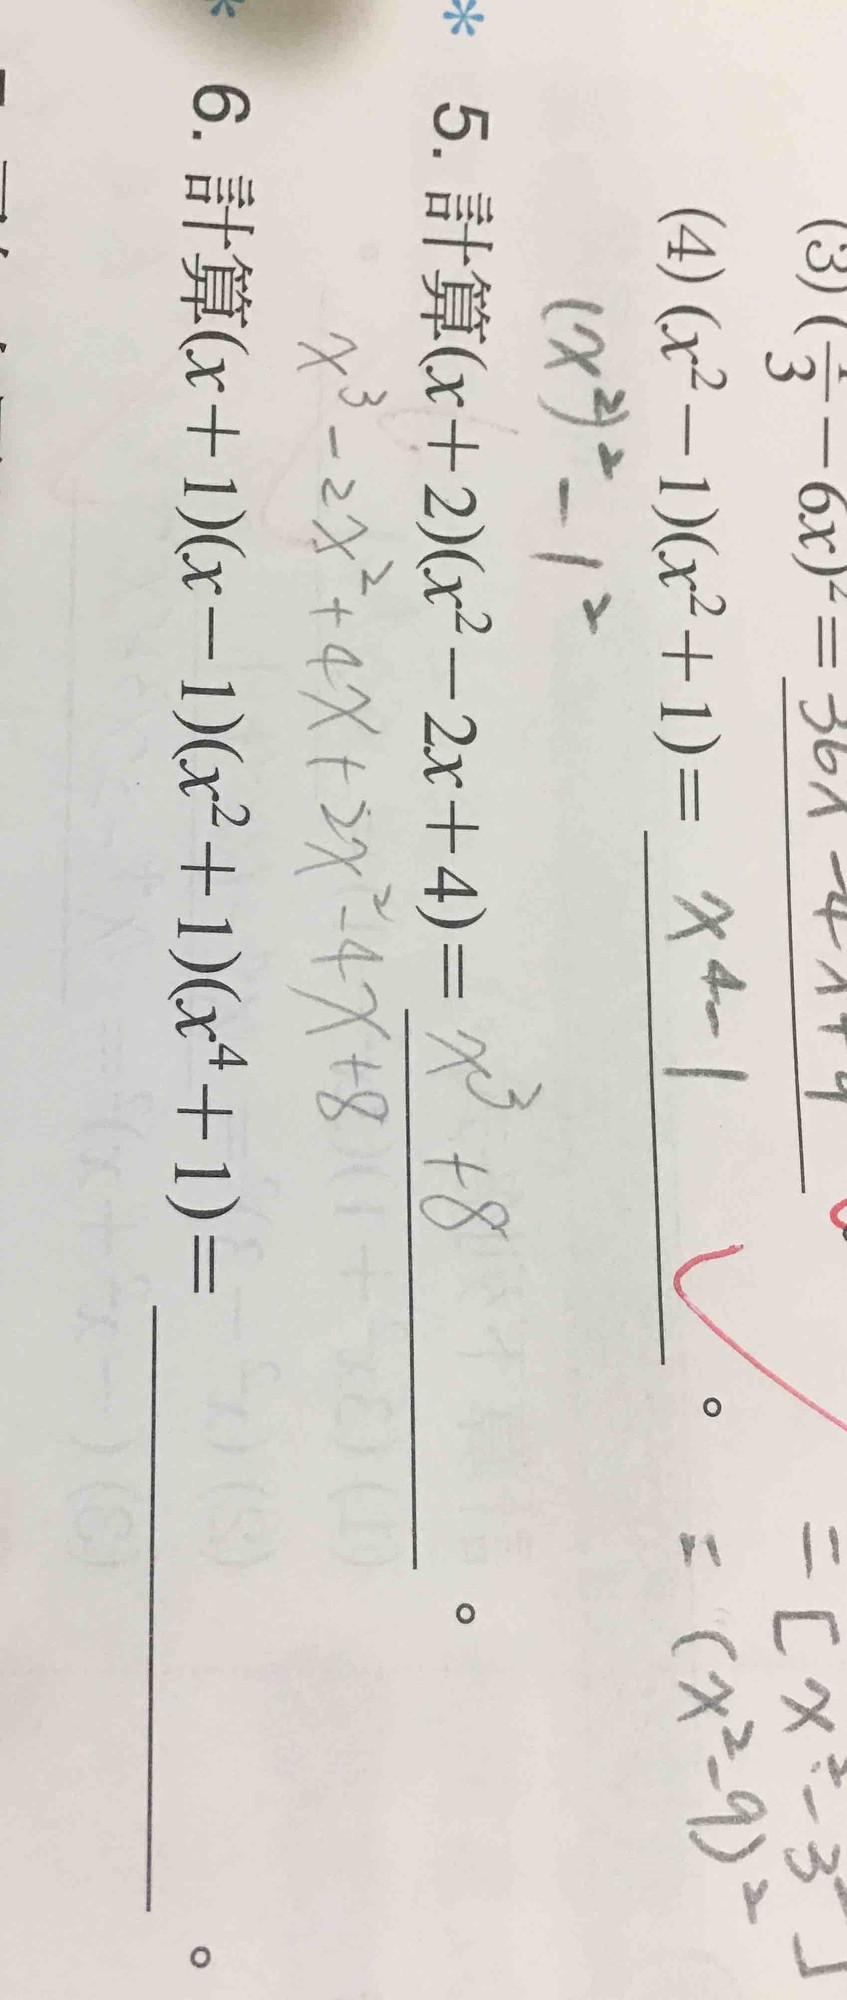 (3) (1/3 − 6x)² = 36x − 4x + 9
= [x² − 3²]
(4) (x² − 1)(x² + 1) = x⁴ − 1 。
= (x² − 9)²
(x²)² − 1²
* 5. 計算(x + 2)(x² − 2x + 4) = x³ + 8 。
x³ − 2x² + 4x + 2x² − 4x + 8
* 6. 計算(x + 1)(x − 1)(x² + 1)(x⁴ + 1) = 。